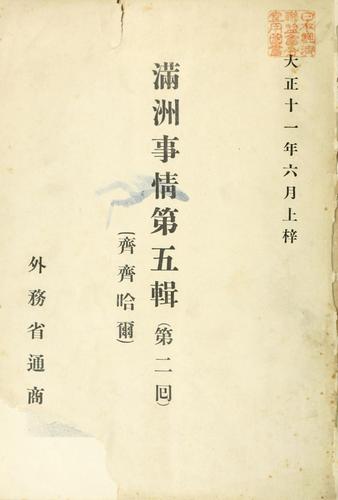 大正十一年六月上梓
滿洲事情第五輯(第二囘)
(齊齊哈爾)
外務省通商